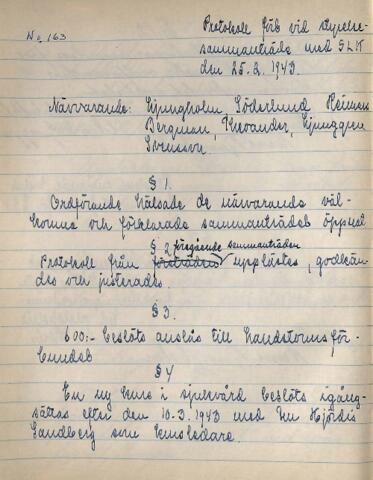 No 163
Protokoll förb vid styrelse-
sammanträde med SLK
den 25.2.1943.
Närvarande: Ljungholm, Söderlund
Bergman, Thevander, Ljunggren
Svensson
§ 1.
Ordförande hälsade de närvarande väl-
komna och förklarade sammanträdet öppnat
§ 2. föregående sammanträden
Protokoll från upplästes, godkän-
des och justerades.
§ 3.
600:- beslöts anslås till Landstormsför-
bundet
§ 4
En ny kurs i sjukvård beslöts igång-
sättas efter den 10-3.1943 med fru Hjördis
Sandberg som kursledare.